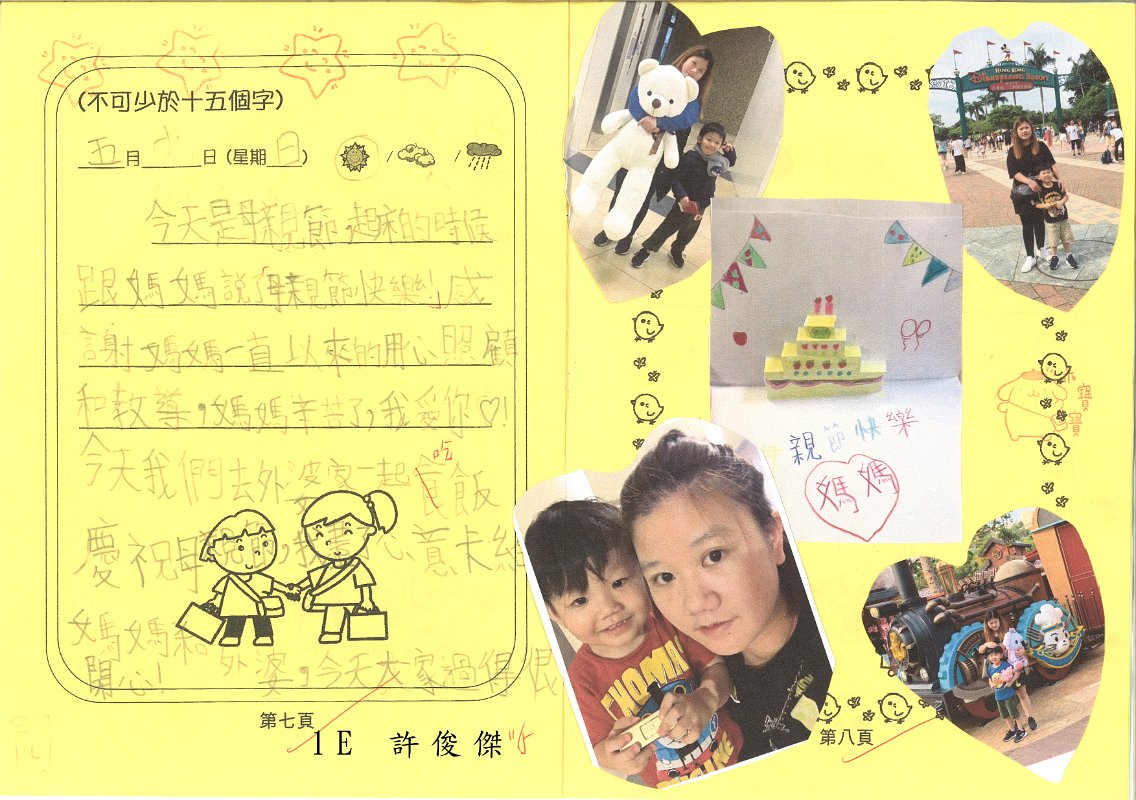 (不可少於十五個字)
五月十日(星期日) / /
今天是母親節,起床的時候
跟媽媽說了「母親節快樂!」感
謝媽媽一直以來的用心照顧
和教導,媽媽辛苦了,我愛你♡!
吃
今天我們去外婆家一起食飯
慶祝母親節,我 心意卡給
媽媽和外婆,今天大家過得很
開心!
第七頁
1E 許俊傑
HONG KONG
DISNEYLAND Resort
親節快樂
媽媽
乖寶寶
THOMAS
第八頁